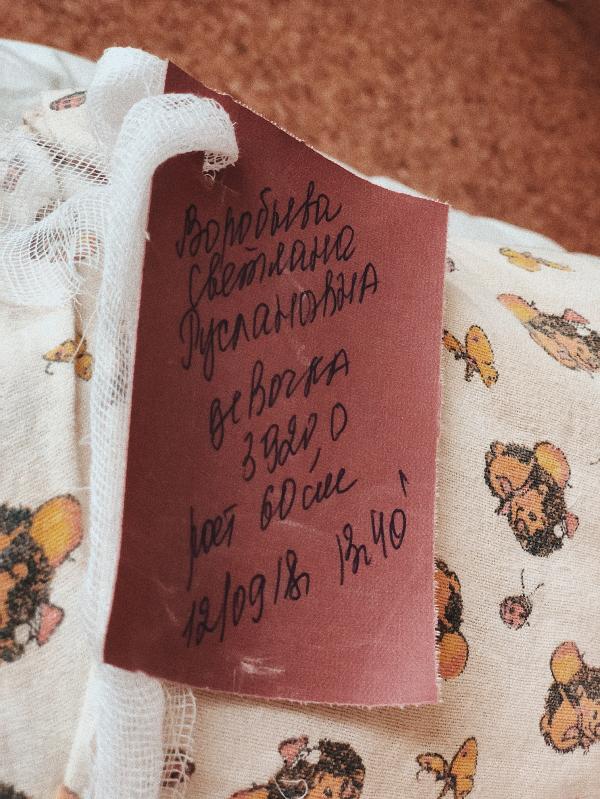 Воробьева
Светлана
Руслановна
девочка
3920,0
рост 60 см
12/09 18г 13ч 40'